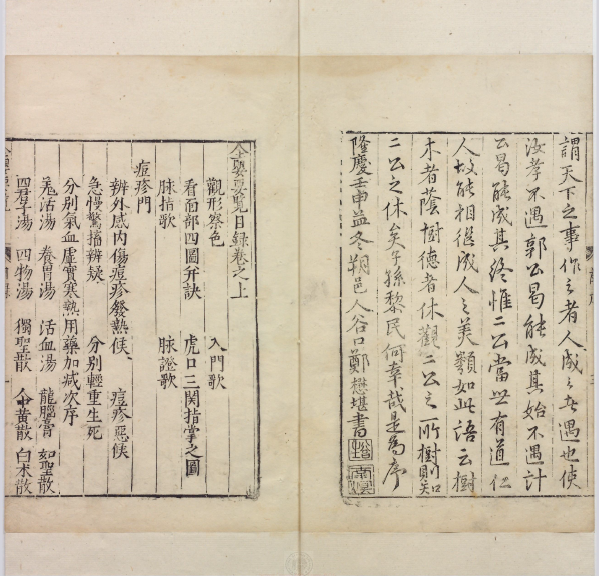 謂天下之事作之者人成之者遇也使
汝孝不遇郭公曷能成其始不遇計
公曷能成其終惟二公當世有道仁
人故能相從成人之美類如此語云樹
木者蔭樹德者休觀二公之所樹則知
二公之休矣子孫黎民何幸哉是為序
隆慶壬申孟冬朔邑人谷口鄭懋堪書
全嬰要覽目録卷之上
觀形察色 入門歌
看面部四圖幷訣 虎口三関指掌之圖
脉指歌 脉證歌
痘疹門
辨外感内傷痘疹發熱候、 痘疹惡候
急慢驚搐辨疑 分别輕重生死
分别氣血虛實寒熱用藥加减次序
羗活湯 養胃湯 活血湯 龍腦膏 如聖散
四君子湯 四物湯 獨聖散 人黄散 白术散